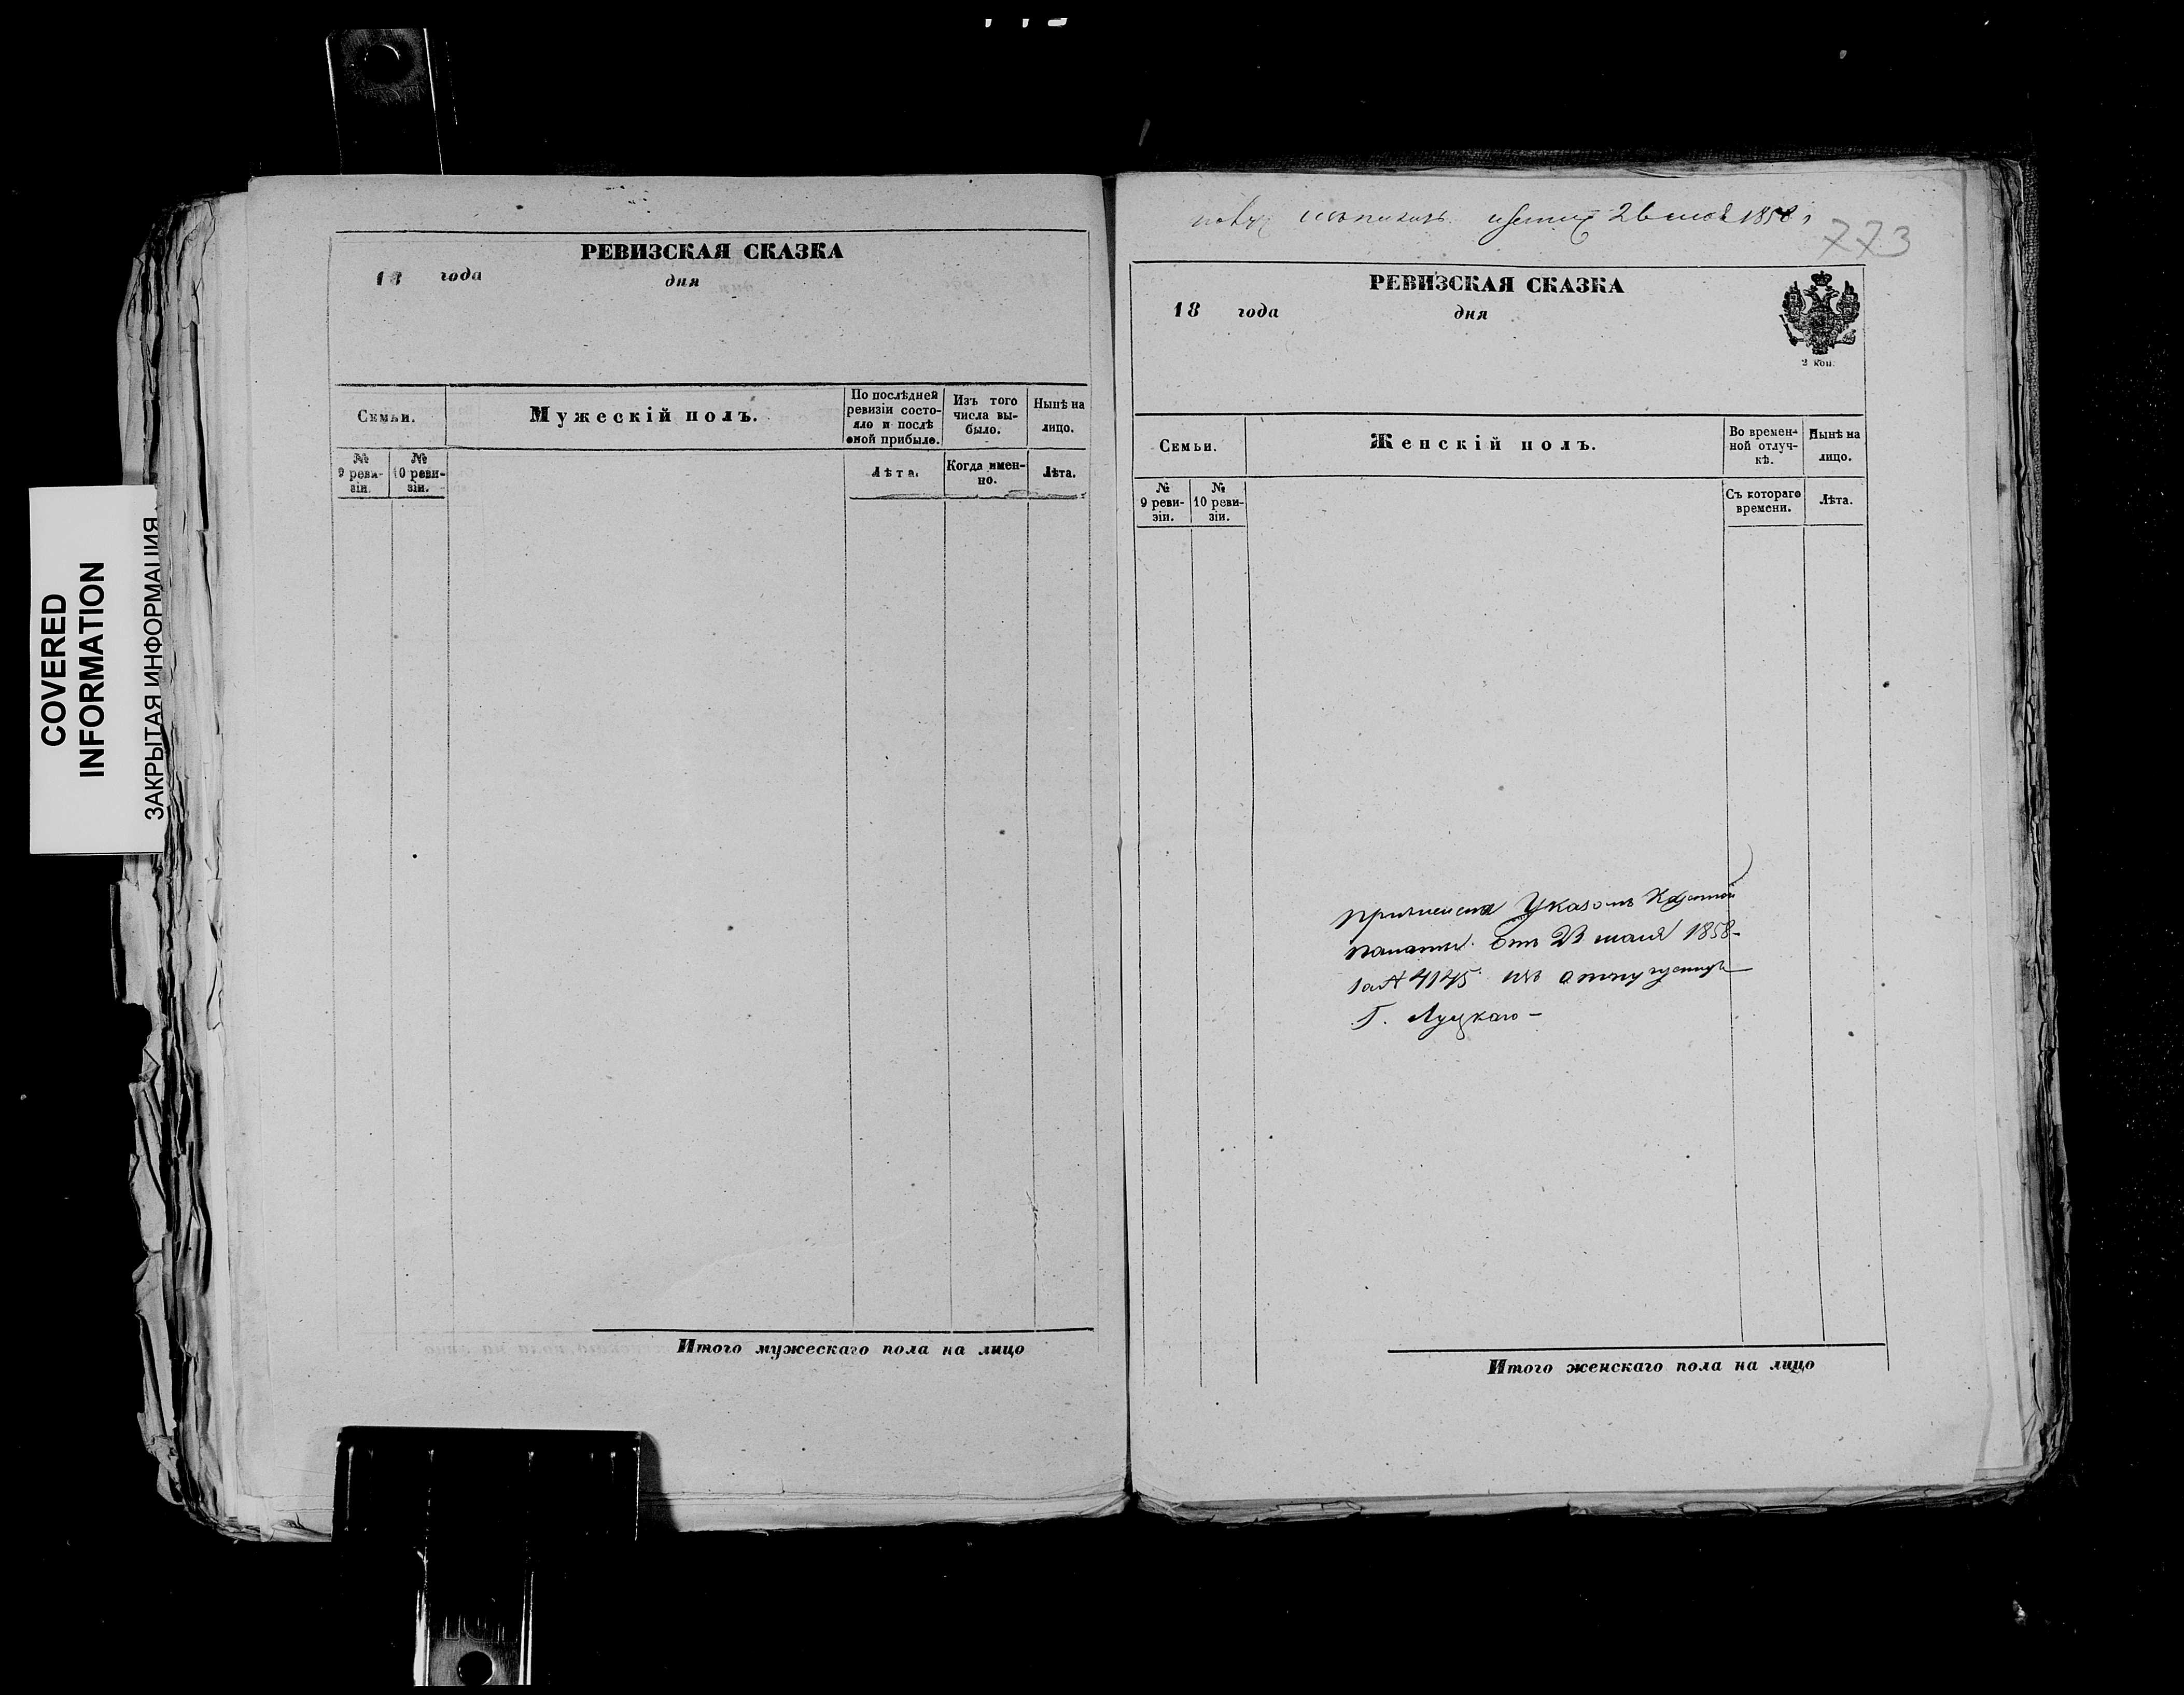 COVERED
INFORMATION
ЗАКРЫТАЯ ИНФОРМАЦИЯ
РЕВИЗСКАЯ СКАЗКА
18 года дня
Семьи.
Мужескій полъ.
По послѣдней
ревизіи состо-
яло и послѣ
оной прибыло.
Изъ того
числа вы-
было.
Нынѣ на
лицо.
№
9 реви-
зіи.
№
10 реви-
зіи.
Лѣта.
Когда имен-
но.
Лѣта.
Итого мужескаго пола на лицо
1858
773
РЕВИЗСКАЯ СКАЗКА
18 года дня
3 коп.
Семьи.
Женскій полъ.
Во времен-
ной отлуч-
кѣ.
Нынѣ на
лицо.
№
9 реви-
зіи.
№
10 реви-
зіи.
Съ котораго
времени.
Лѣта.
Указомъ Казенной
палаты отъ 23 1858
за № 4145 изъ
Г. Луцкаго
Итого женскаго пола на лицо